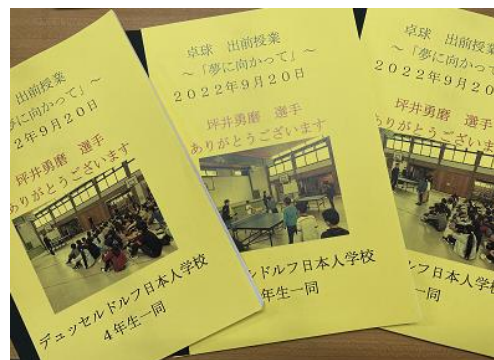 出前授業
夢に向かって」～
2年9月20日
坪井勇磨 選手
ありがとうございます
デュッセルドルフ日本人学校
4年生一同
卓球 出前授業
～「夢に向かって」～
2022年9月20日
坪井勇磨 選手
ありがとうございます
ルドルフ日本人学校
年生一同
卓球 出前授業
～「夢に向かって
2022年9月20
坪井勇磨 選手
りがとうございま
ルフ日本人学校
生一同